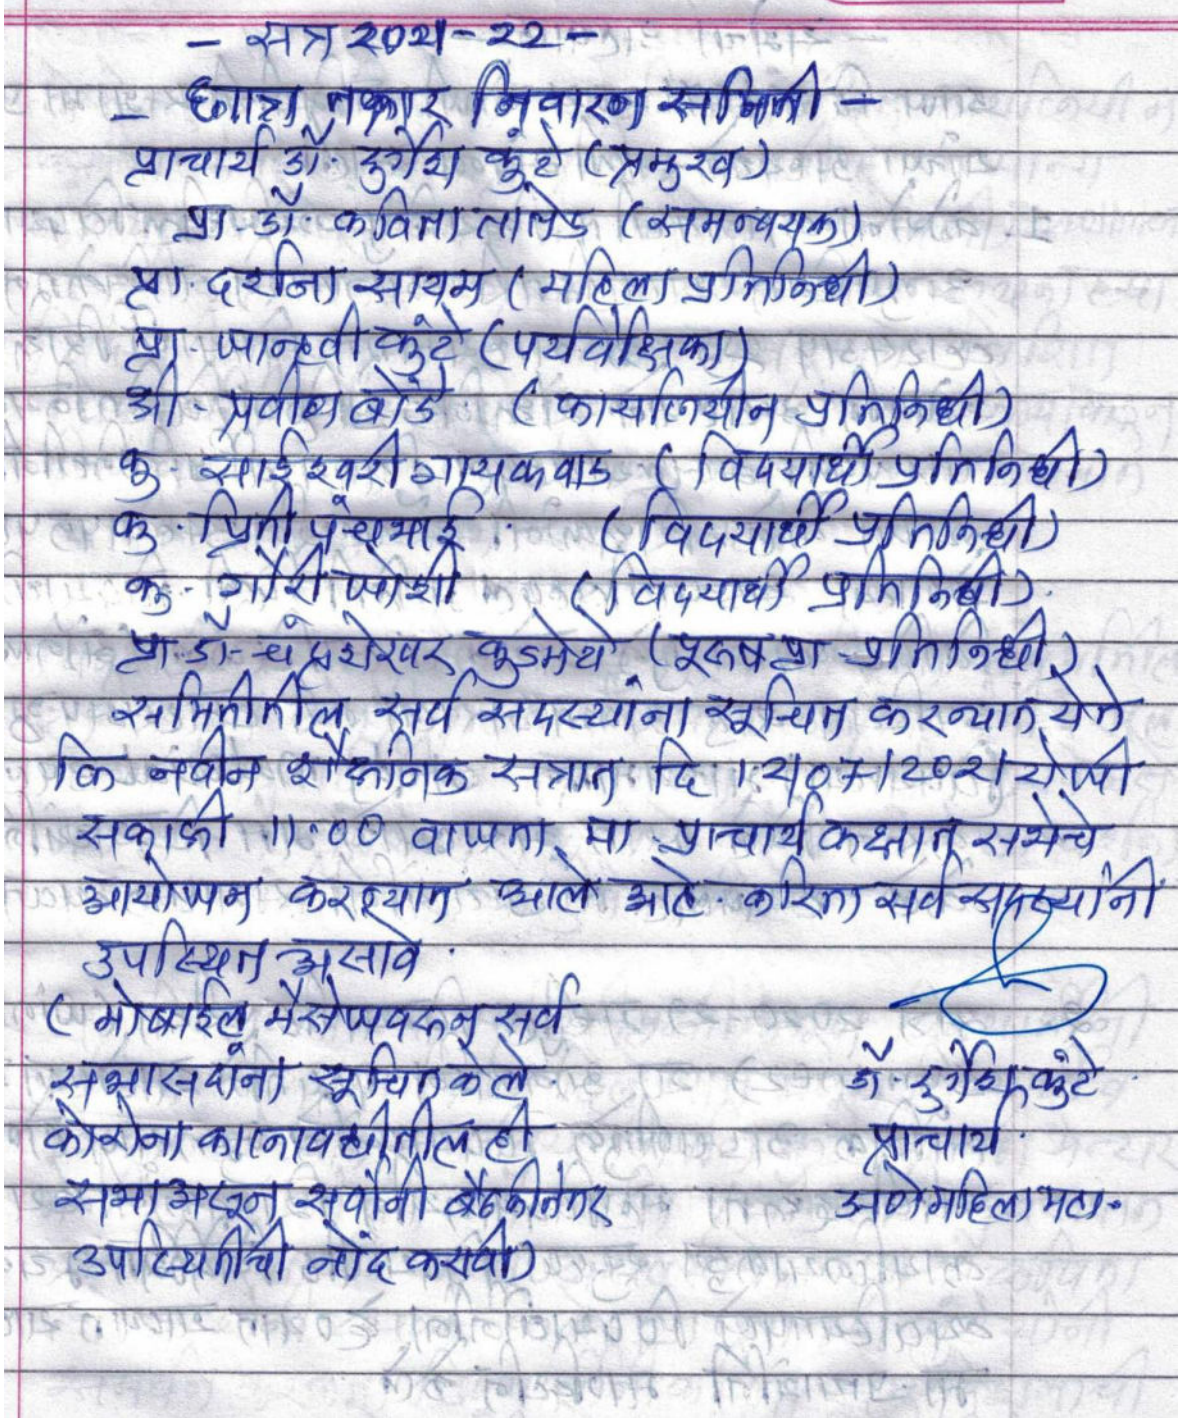 - सत्र 2021-22 -
- छात्रा तक्रार निवारण समिती -
प्राचार्य डॉ. दुर्गेश कुंटे (प्रमुख)
प्रा. डॉ. कविता तातेड (समन्वयक)
प्रा. दर्शना सायम (महिला प्रतिनिधी)
प्रा. जान्हवी कुंटे (पर्यवेक्षिका)
श्री. प्रवीण बोंडे (कार्यालयीन प्रतिनिधी)
कु. साईश्वरी गायकवाड (विदयार्थी प्रतिनिधी)
कु. प्रिती पंचभाई. (विदयार्थी प्रतिनिधी)
कु. गौरी जोशी (विदयार्थी प्रतिनिधी).
प्रा. डॉ. चंद्रशेखर कुडमेथे (पुरूष प्रा. प्रतिनिधी)
समितीतील सर्व सदस्यांना सूचित करन्यात येते
कि नवीन शैक्षनिक सत्रात दि 12/07/2021 रोजी
सकाळी 11.00 वाजता मा. प्राचार्य कक्षात सभेचे
आयोजन करण्यात आले आहे. करिता सर्व सदस्यांनी
उपस्थित असावे.
(मोबाईल मॅसेजवरून सर्व
सभासदांना सूचित केले.
डॉ. दुर्गेश कुंटे
कोरोना कालावधीतील ही
प्राचार्य.
सभा असून सर्वांनी बैठकीनंतर
अणे महिला महा.
उपस्थितीची नोंद करावी)